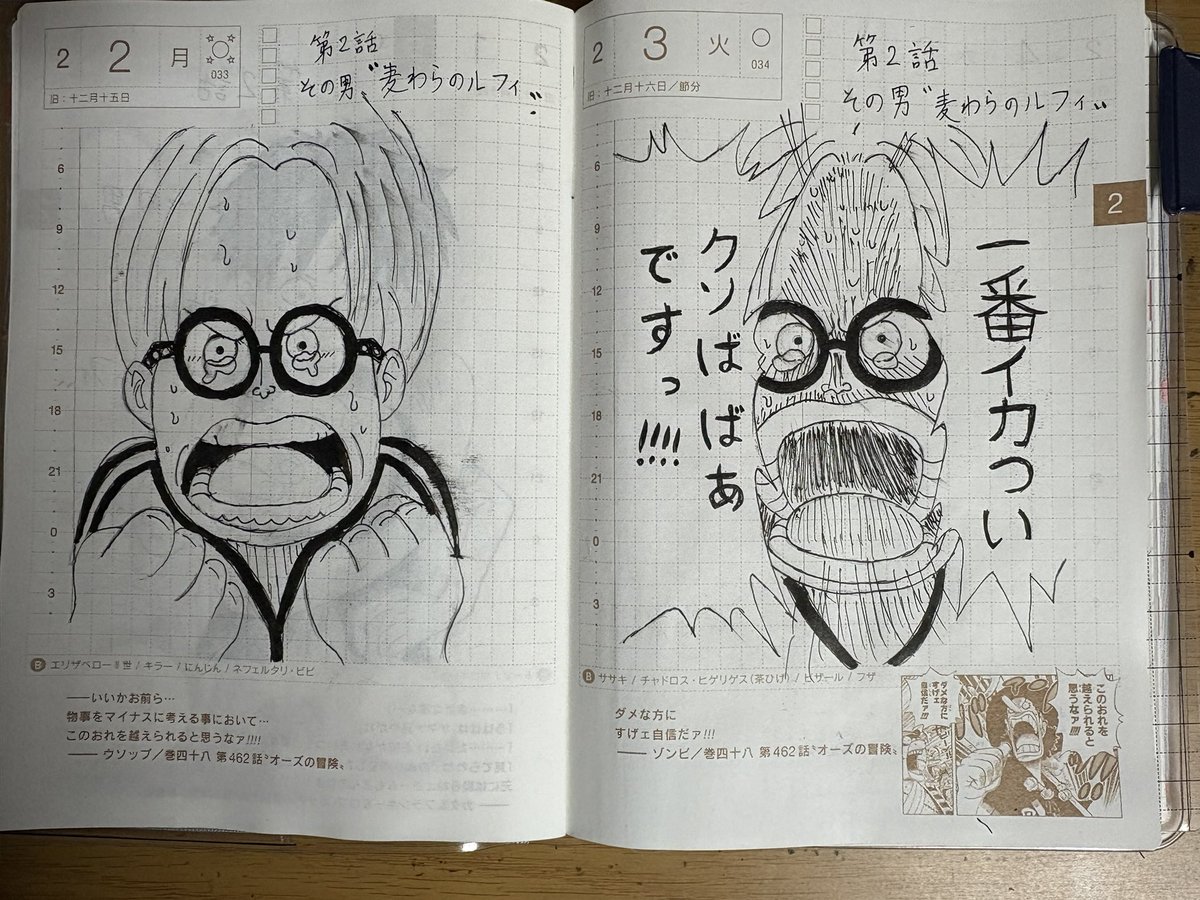 2 2 月
033
旧：十二月十五日
第2話
その男〝麦わらのルフィ〟
6
9
12
15
18
21
0
3
B エリザベローⅡ世 / キラー / にんじん / ネフェルタリ・ビビ
――いいかお前ら…
物事をマイナスに考える事において…
このおれを越えられると思うなァ!!!!
―― ウソップ／巻四十八 第462話〝オーズの冒険〟
2 3 火
034
旧：十二月十六日／節分
第2話
その男〝麦わらのルフィ〟
2
一番イカつい
クソばばあ
ですっ!!!!
6
9
12
15
18
21
0
3
B ササキ / チャドロス・ヒゲリゲス(茶ひげ) / ビザール / フザ
ダメな方に
すげェ自信だァ!!!
―― ゾンビ／巻四十八 第462話〝オーズの冒険〟
このおれを
越えられると
思うなァ!!!!
ダメな方に
すげェ
自信だァ!!!